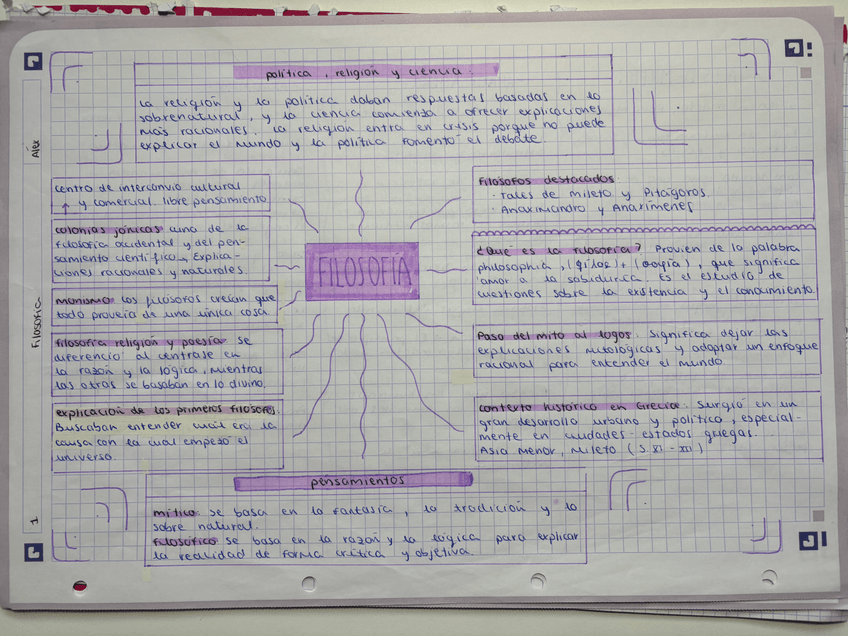 política, religión y ciencia.
La religión y la política daban respuestas basadas en lo
sobrenatural, y la ciencia comienza a ofrecer explicaciones
más racionales. La religión entra en crisis porque no puede
explicar el mundo y la política fomentó el debate.
centro de intercanvio cultural
y comercial. libre pensamiento
colonias jónicas cuno de la
filosofía ocidental y del pen-
samiento científico → Explica-
ciones racionales y naturales.
monismo los filósofos creían que
todo proveía de una única cosa
filosofía religión y poesía se
diferenció al centrase en
la razón y la lógica, mientras
las otras se basaban en lo divino.
explicación de los primeros filósofos.
Buscaban entender cuál era la
causa con la cual empezó el
universo.
FILOSOFÍA
Filósofos destacados
· Tales de mileto y Pitágoras.
· Anaximandro y Anaxímenes
¿Qué es la filosofía? Provien de la palabra
philosophia, (φilos) + (σοφία), que significa
amor a la sabiduría. Es el estudio de
cuestiones sobre la existencia y el conocimiento.
Paso del mito al logos. Significa dejar las
explicaciones mitológicas y adoptar un enfoque
racional para entender el mundo
contexto histórico en Grecia. Surgió en un
gran desarrollo urbano y político, especial-
mente en ciudades-estados griegas.
Asia menor, mileto
pensamientos
mítico: se basa en la fantasía, la tradición y lo
sobre natural.
filosófico se basa en la razón y la lógica para explicar
la realidad de forma crítica y objetiva.
Álex
Filosofía
1